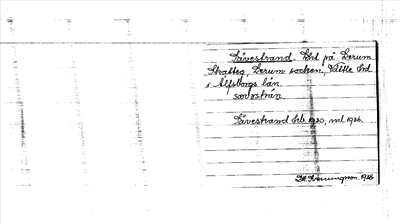 Sävestrand. Lht på Lerum
Stratteg, Lerum socken, Vättle hd
i Älfsborgs län.
sævastrán
Sävestrand leb. 1930, md. 1926.
1926